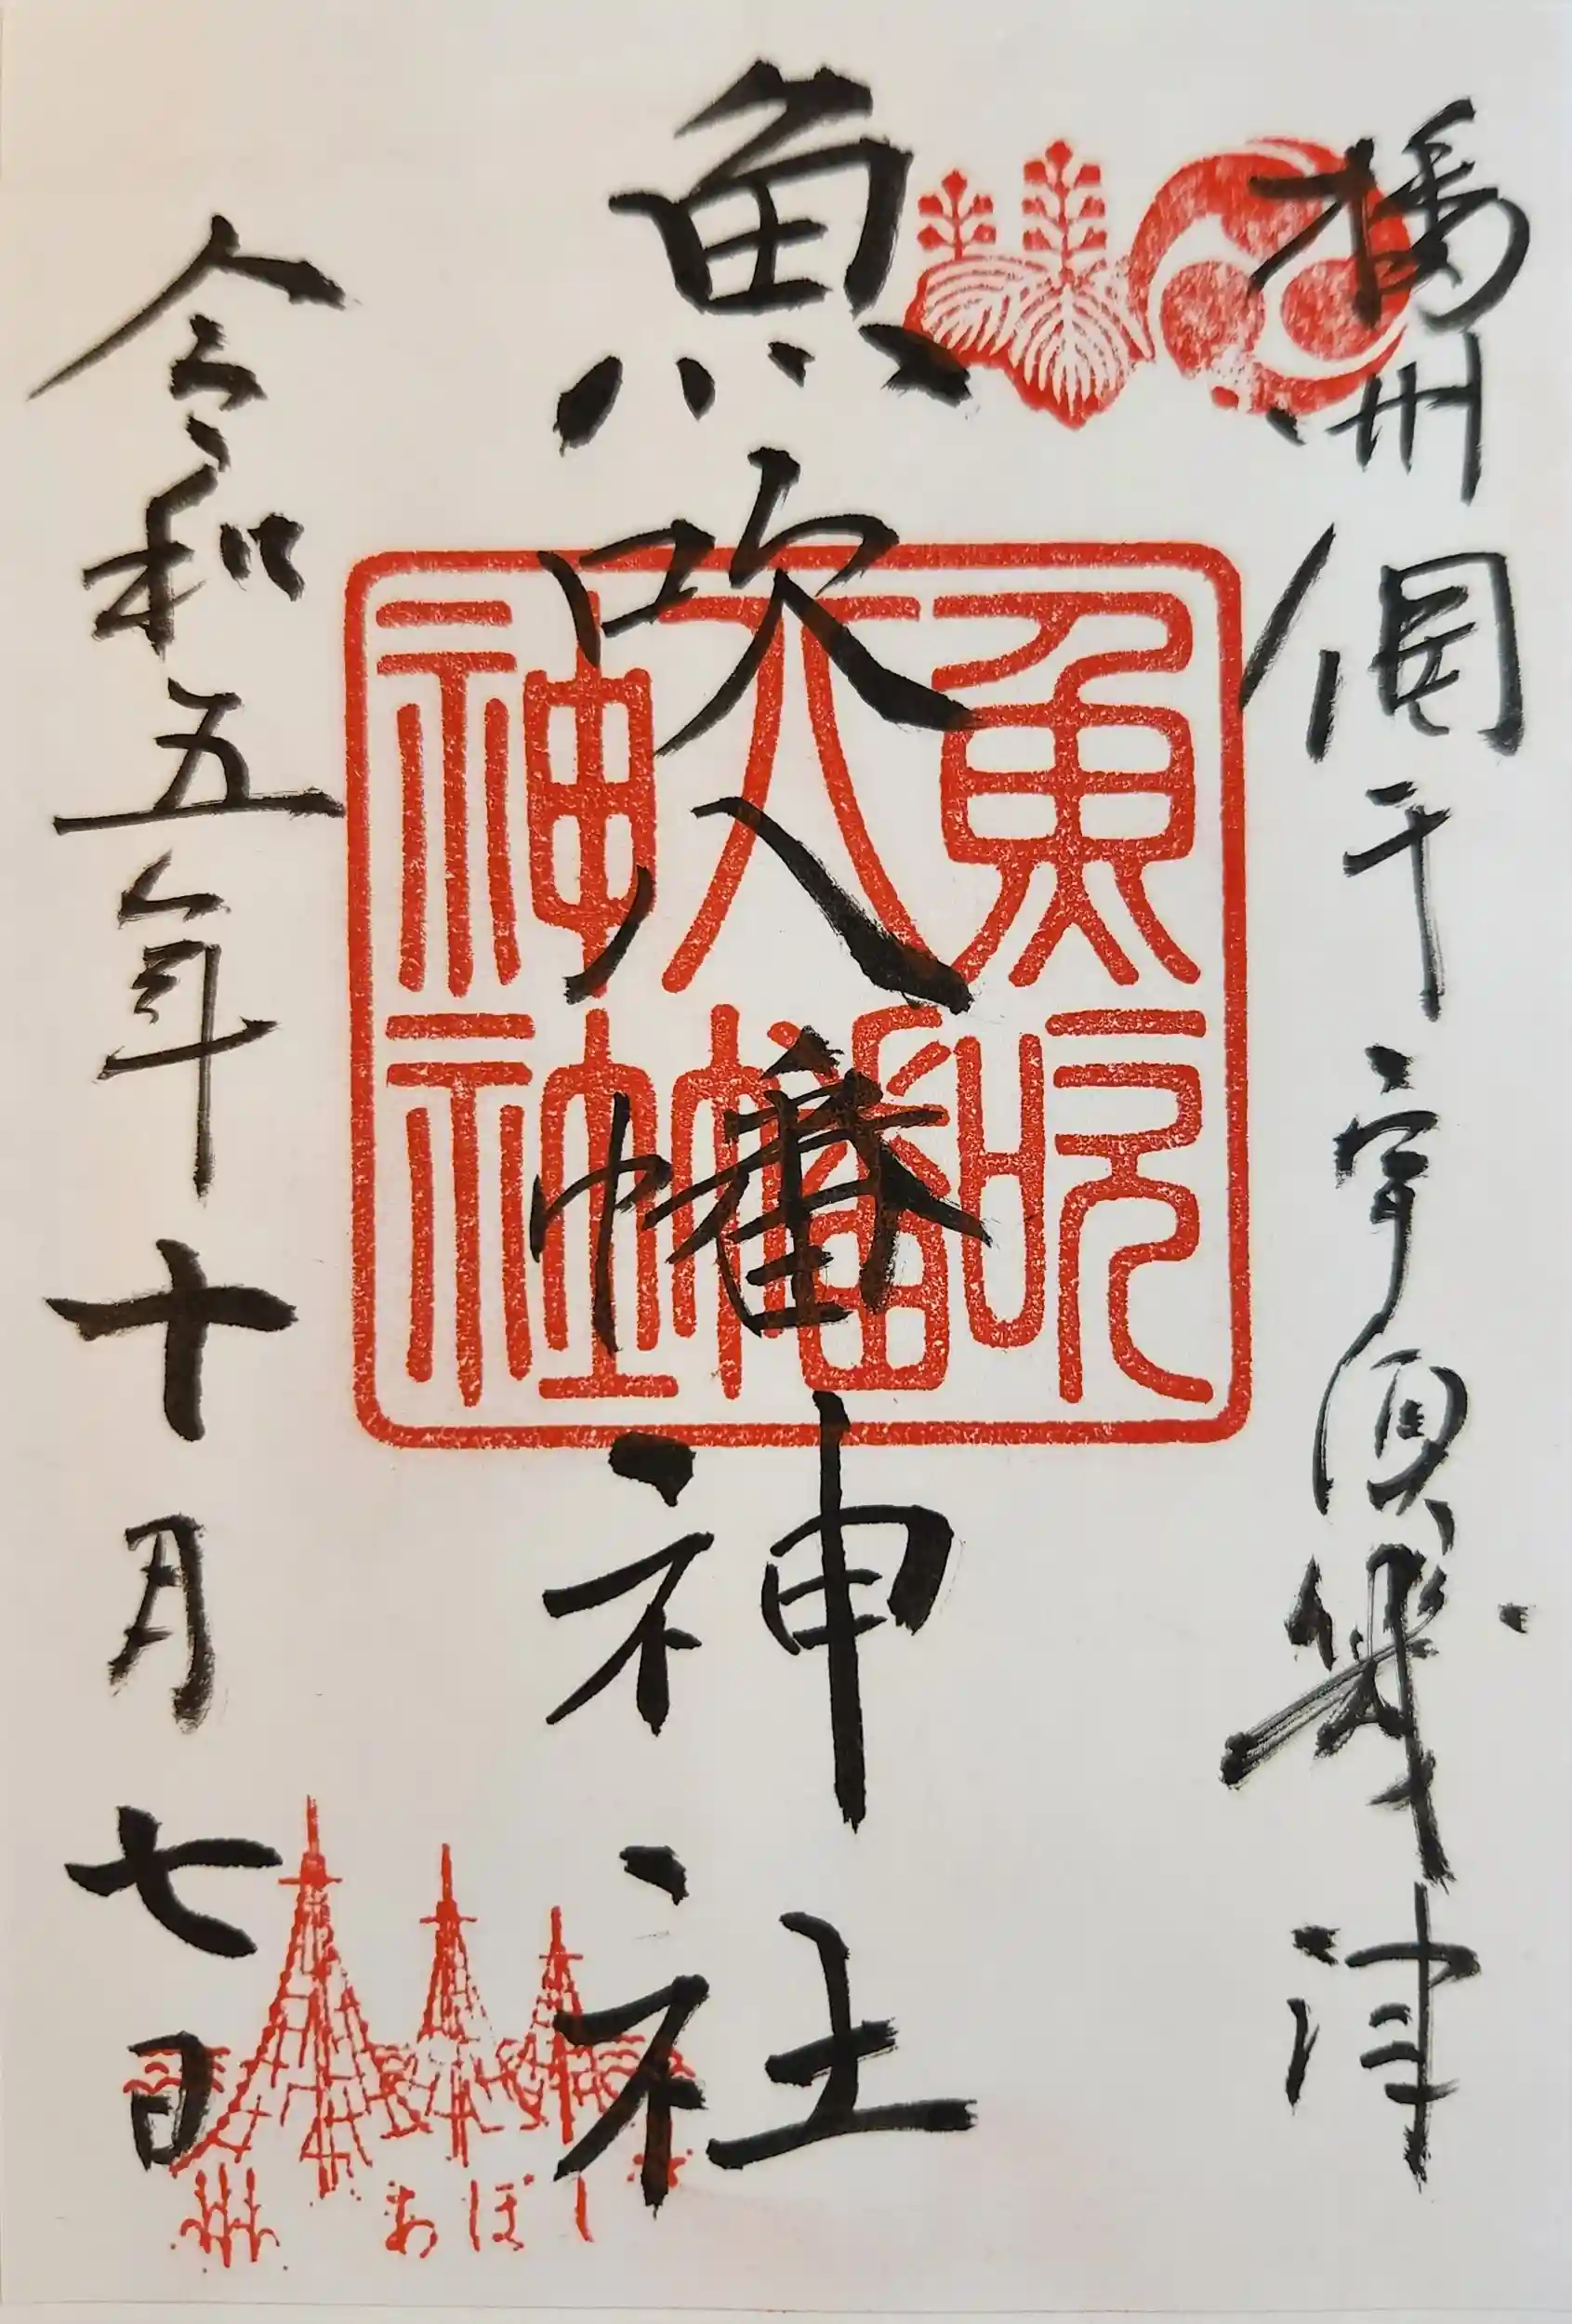 播州網干宇須幾津
魚吹八幡神社
令和五年十月七日
魚吹
八幡
神社
あぼし